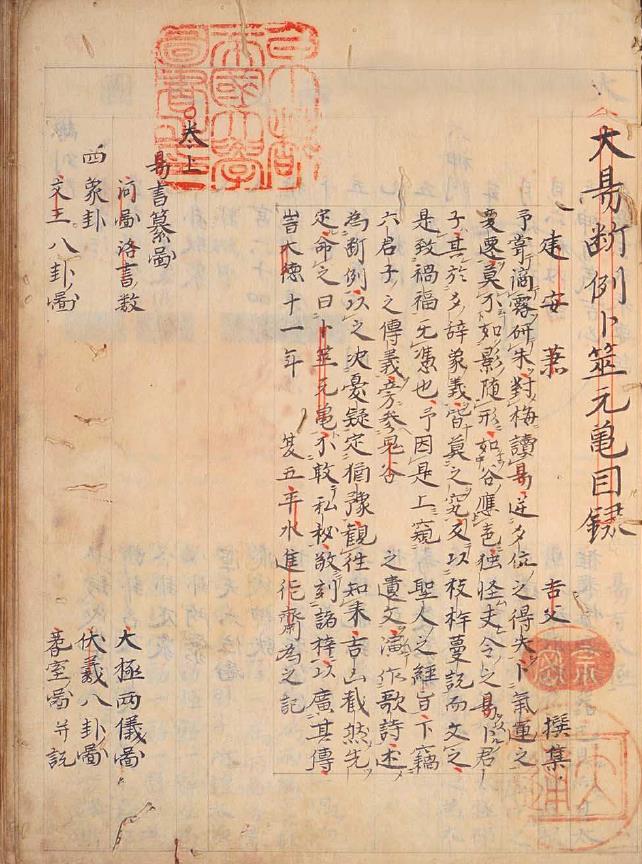 大易断例卜筮元亀目録
建安 蕭 吉父 撰集
予嘗滴露研朱對梅讀易迸爻位之得失卜氣運之
憂悪莫不如影随形如谷應声独怪丈今之易卜君
子其於爻辞象義皆莫之究友以枝幹蔓説而文之
是致禍福无憑也予因是上窺 聖人之經旨下竊
六君子之傳義旁参鬼谷 之遺文演作歌詩述
為断例以之决憂疑定猶豫觀往知来吉凶截然先
定命之曰卜筮元亀不敢私秘敬刻諸梓以廣其傳
旹大德十一年 五 水進 齋為之記
巻上
易書纂圖
河圖洛書数 大極兩儀圖
四象卦 伏羲八卦圖
文王八卦圖 蓍室圖并説
京都帝國大學圖書之印